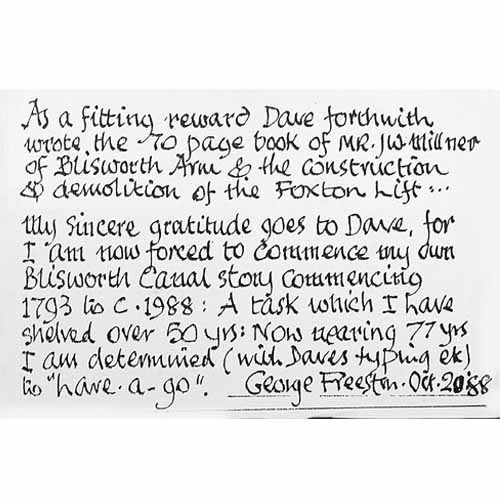 As a fitting reward Dave forthwith
wrote the 70 page book of MR. J.W Millner
of Blisworth Arm & the construction
& demolition of the Foxton Lift...
My Sincere gratitude goes to Dave, for
I am now forced to commence my own
Blisworth Canal story commencing
1793 to C.1988: A task which I have
shelved over 50 yrs: Now nearing 77 yrs
I am determined (with Daves typing etc)
to "have-a-go". George Freeston. Oct. 20. '88